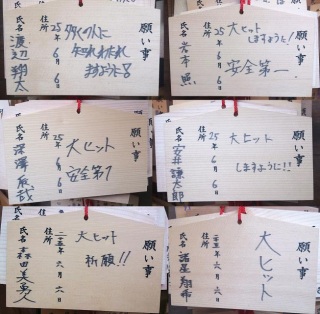 願い事
多くの人に
知られ、みられ
ますように!!
住所
25年6月6日
氏名 渡辺翔太
願い事
大ヒット
しますように!
安全第一
住所
25年6月6日
氏名 岩本照
願い事
大ヒット
安全第一
住所
25年6月6日
氏名 深澤辰哉
願い事
大ヒット
しますように!!
住所
25年6月6日
氏名 安井謙太郎
願い事
大ヒット
祈願!!
住所
二五年六月六日
氏名 森田美勇人
願い事
大ヒット
住所
二五年六月六日
氏名 諸星翔希